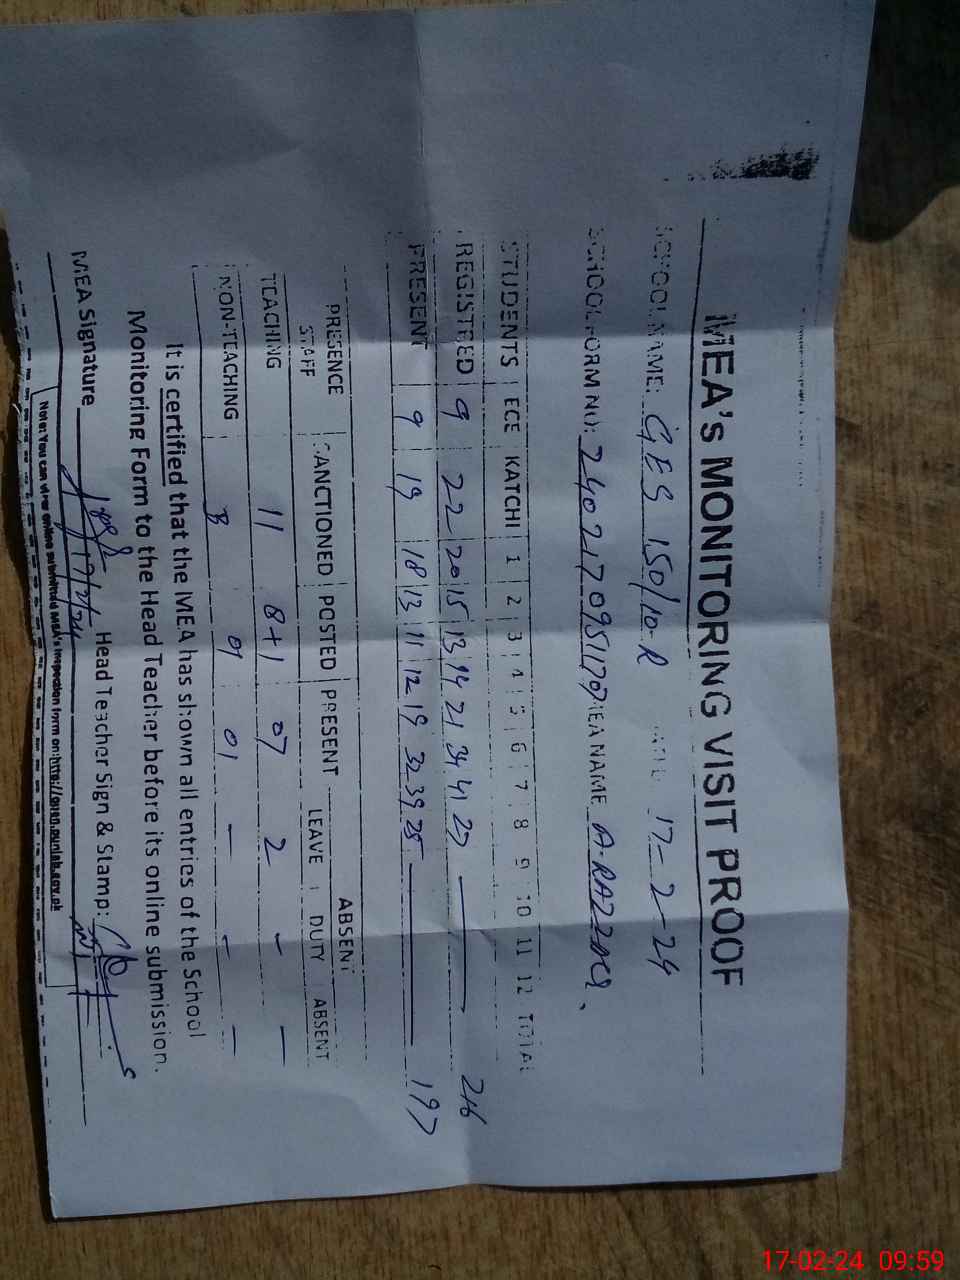 MEA's MONITORING VISIT PROOF
SCHOOL NAME: GES 150/10-R DATE 17-2-24
SCHOOL FORM NO: MEA NAME A. RAZZAQ
STUDENTS ECE KATCHI 1 2 3 4 5 6 7 8 9 10 11 12 TOTAL
REGISTRED 9 22 20 15 13 14 21 34 41 27 — 216
PRESENT 9 19 18 13 11 12 19 32 39 25 — 197
PRESENCE STAFF SANCTIONED POSTED PRESENT ABSENT
LEAVE DUTY ABSENT
TEACHING 11 8+1 07 2 - -
NON-TEACHING 01 01 - - -
It is certified that the MEA has shown all entries of the School
Monitoring Form to the Head Teacher before its online submission.
MEA Signature 17/2/24 Head Teacher Sign & Stamp:
Note: You can view online submitted MEA's inspection form on:http://open.punjab.gov.pk
17-02-24 09:59